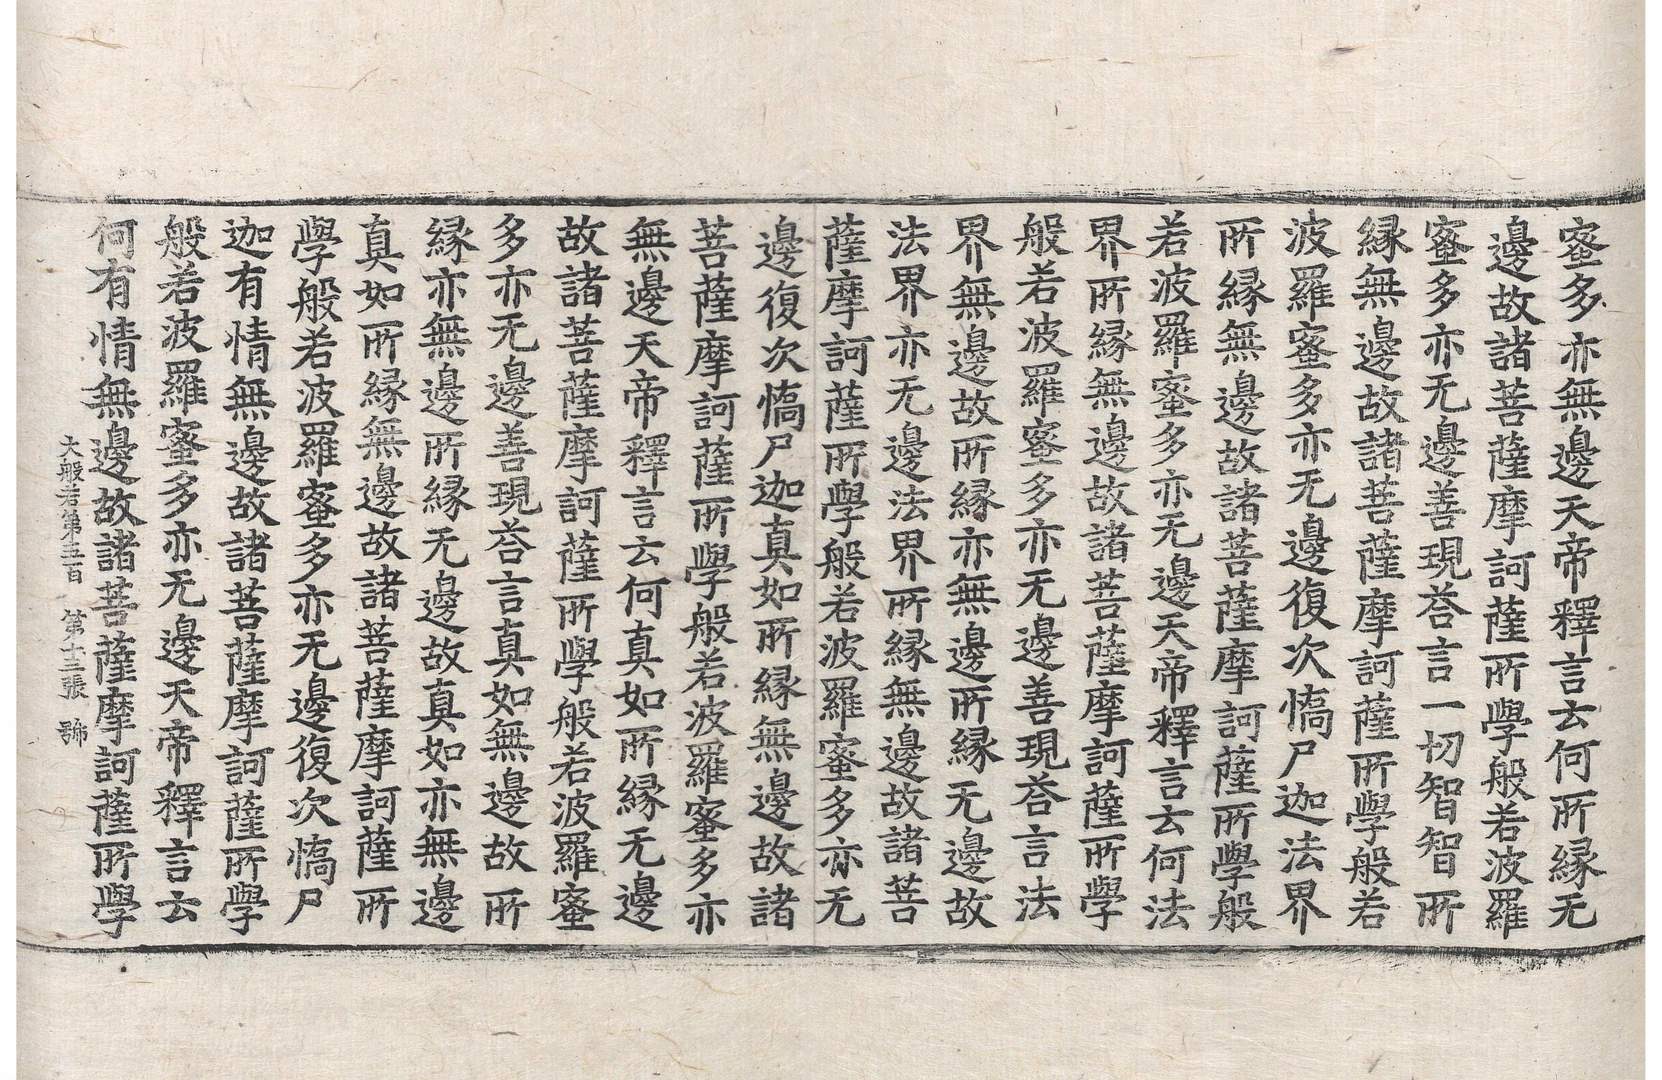 蜜多亦無邊天帝釋言云何所縁无
邊故諸菩薩摩訶薩所學般若波羅
蜜多亦无邊善現荅言一切智智所
縁無邊故諸菩薩摩訶薩所學般若
波羅蜜多亦无邊復次憍尸迦法界
所縁無邊故諸菩薩摩訶薩所學般
若波羅蜜多亦无邊天帝釋言云何法
界所縁無邊故諸菩薩摩訶薩所學
般若波羅蜜多亦无邊善現荅言法
界無邊故所縁亦無邊所縁无邊故
法界亦无邊法界所縁無邊故諸菩
薩摩訶薩所學般若波羅蜜多亦无
邊復次憍尸迦真如所縁無邊故諸
菩薩摩訶薩所學般若波羅蜜多亦
無邊天帝釋言云何真如所縁无邊
故諸菩薩摩訶薩所學般若波羅蜜
多亦无邊善現荅言真如無邊故所
縁亦無邊所縁无邊故真如亦無邊
真如所縁無邊故諸菩薩摩訶薩所
學般若波羅蜜多亦无邊復次憍尸
迦有情無邊故諸菩薩摩訶薩所學
般若波羅蜜多亦无邊天帝釋言云
何有情無邊故諸菩薩摩訶薩所學
大般若第五百 第十三張 號